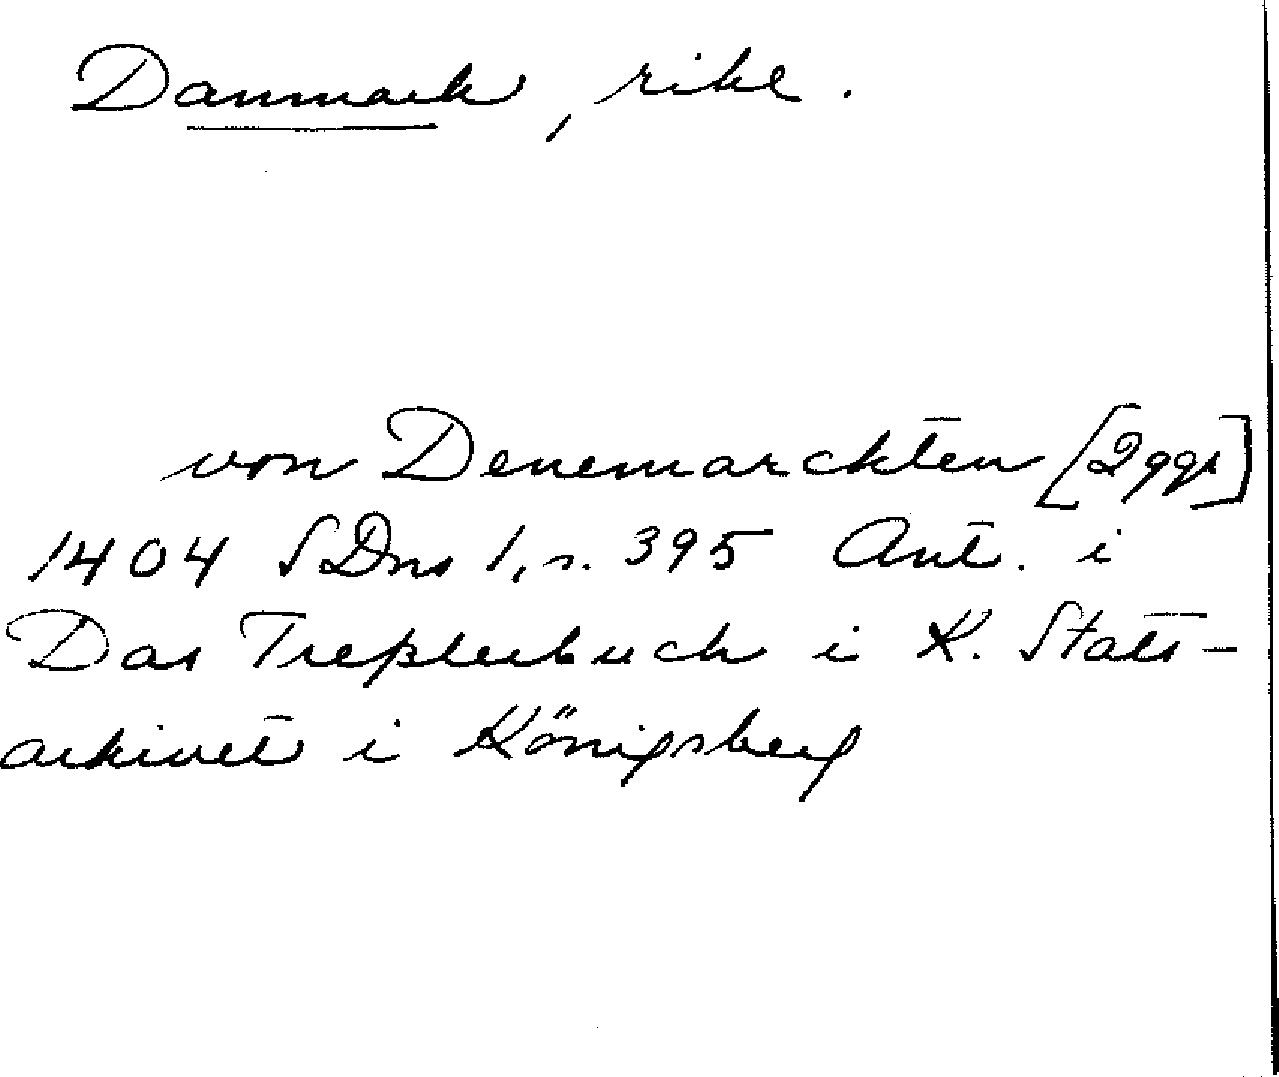 Danmark, rike.
von Denemarckten [2 ggr]
1404 SDns 1, s. 395 Ant. i
Das Treplerbuch i K. Stats-
arkivet i Königsberg